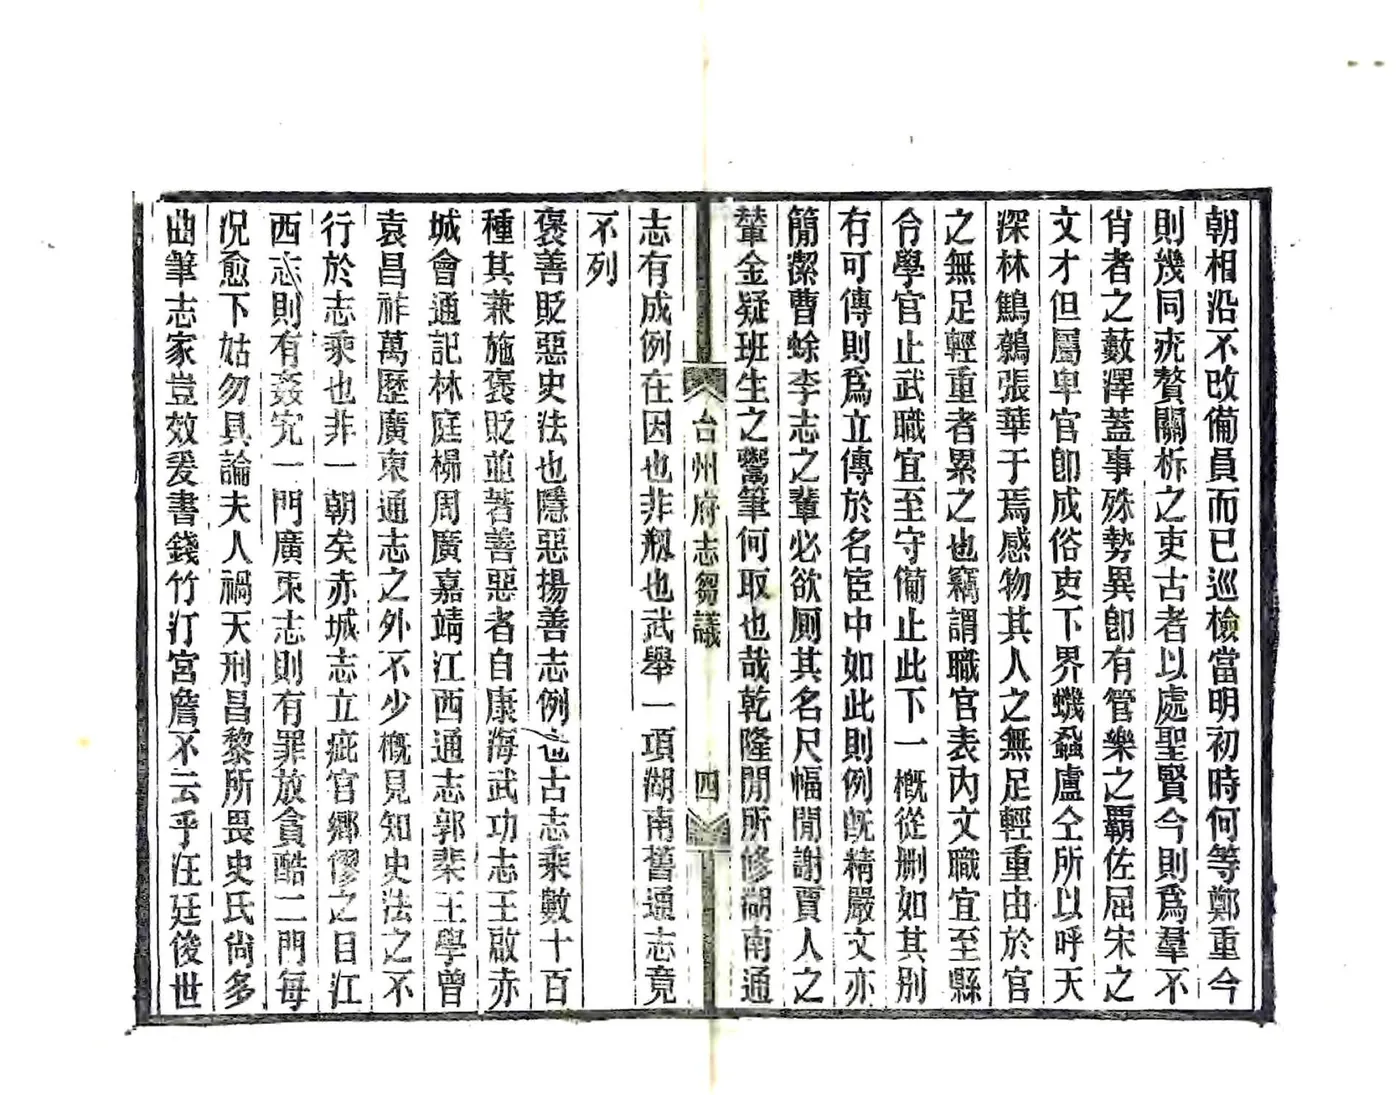 朝相沿不改備員而已巡檢當明初時何等鄭重今
則幾同疣贅關柝之吏古者以處聖賢今則爲羣不
肖者之藪澤蓋事殊勢異卽有管樂之覇佐屈宋之
文才但屬卑官卽成俗吏下界蟣蝨盧仝所以呼天
深林鷦鷯張華于焉感物其人之無足輕重由於官
之無足輕重者累之也竊謂職官表內文職宜至縣
令學官止武職宜至守備止此下一槪從删如其別
有可傳則爲立傳於名宦中如此則例旣精嚴文亦
簡潔曹蜍李志之輩必欲厠其名尺幅閒謝賈人之
輦金疑班生之鬻筆何取也哉乾隆閒所修湖南通
台州府志芻議
四
志有成例在因也非剏也武舉一項湖南舊通志竟
不列
褒善貶惡史法也隱惡揚善志例也古志乘數十百
種其兼施褒貶並著善惡者自康海武功志王啟赤
城會通記林庭㭿周廣嘉靖江西通志郭棐王學曾
袁昌祚萬歷廣東通志之外不少槪見知史法之不
行於志乘也非一朝矣赤城志立疵官鄉僇之目江
西志則有姦宄一門廣東志則有罪放貪酷二門每
況愈下姑勿具論夫人禍天刑昌黎所畏史氏尙多
曲筆志家豈效爰書錢竹汀宮詹不云乎汪廷俊世